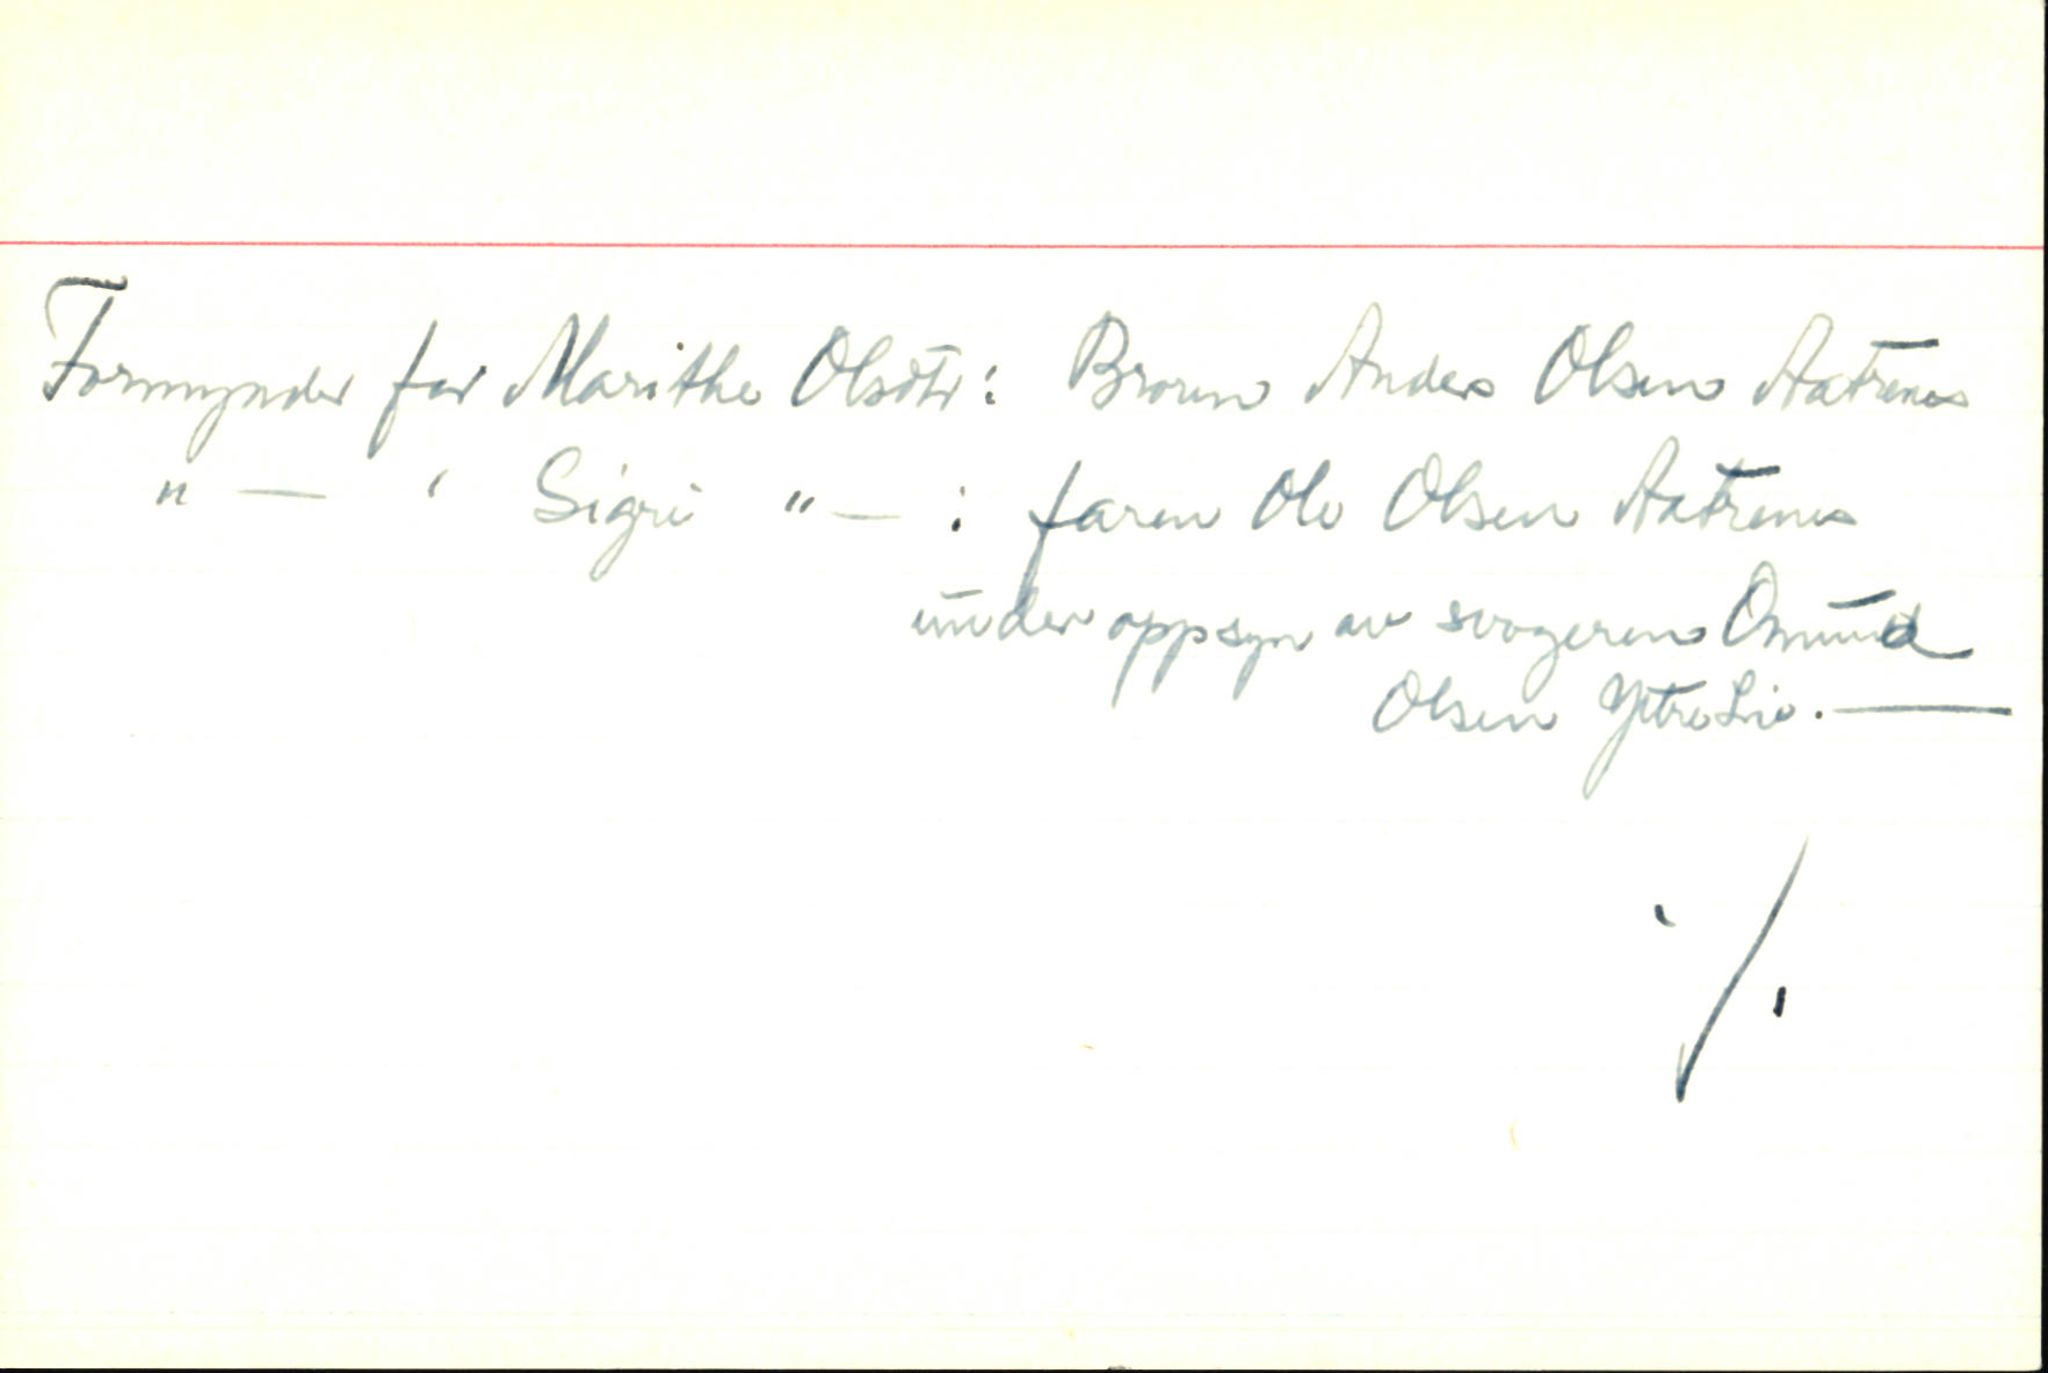 Formynder for Marithe Olsdtr: Broren Anders Olsen Aatrenes
" — " Sigri " — : faren Ole Olsen Aatrenes
under oppsyn av svogeren Omund
Olsen Ytre Lie. —